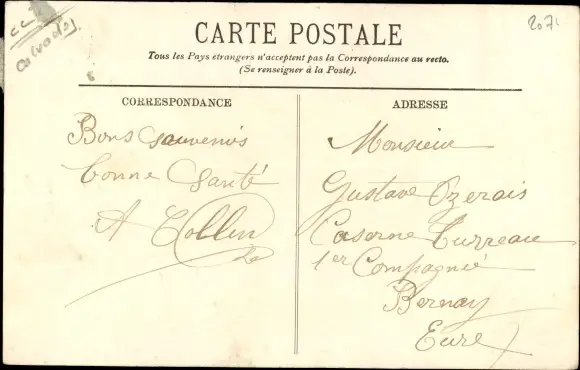 Calvados
2071
CARTE POSTALE
Tous les Pays étrangers n'acceptent pas la Correspondance au recto.
(Se renseigner à la Poste).
CORRESPONDANCE
Bons Souvenirs
bonne Santé
A Collin
ADRESSE
Monsieur
Gustave Ozerais
Caserne Turreau
1er Compagnie
Bernay
Eure